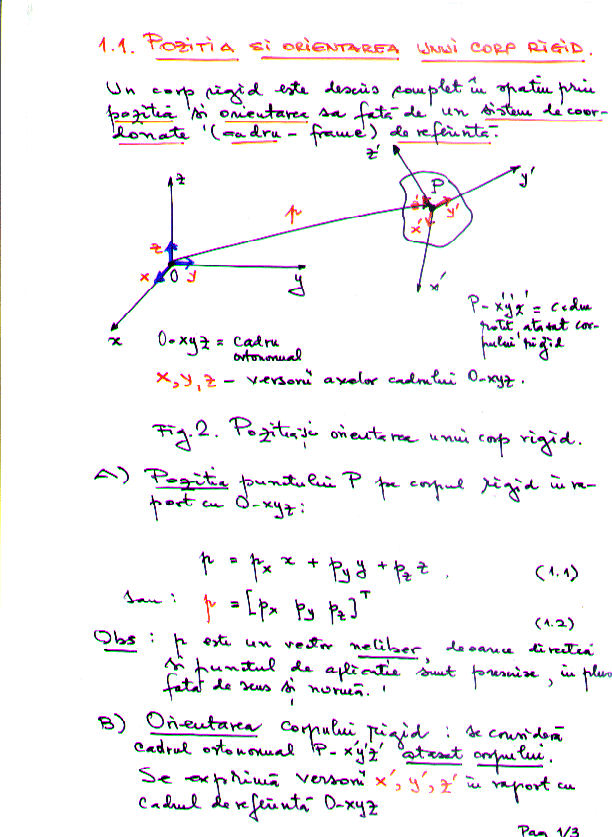 1.1. POZITIA SI ORIENTAREA UNUI CORP RIGID.
Un corp rigid este descris complet in spatiu prin
pozitia si orientarea sa fată de un sistem de coor-
donate (cadru - frame) de referintă.
z'
y'
P
z
p
z' y'
x'
z
x O y
y
x'
x
P-x'y'z' = cadru
atasat cor-
pului rigid
O-xyz = cadru
ortonormal
x, y, z - versorii axelor cadrului O-xyz.
Fig. 2. Pozitia si orientarea unui corp rigid.
A) Pozitia punctului P pe corpul rigid in ra-
port cu O-xyz:
p = px x + py y + pz z . (1.1)
sau : p = [px py pz]^T
(1.2)
Obs : p este un vector neliber, deoarece directia
si punctul de aplicatie sunt precise, in plus
fată de sens si normă.
B) Orientarea corpului rigid : se consideră
cadrul ortonormal P-x'y'z' atasat corpului.
Se exprimă versorii x', y', z' in raport cu
cadrul de referintă O-xyz
Pag 1/3